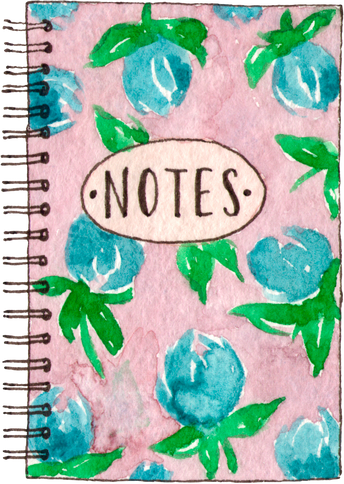 ·NOTES·